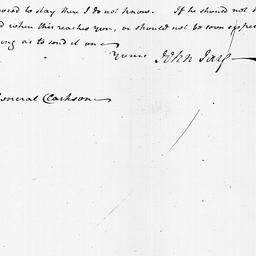 posed to stay there I do not know. If he should not be
when this reaches you, or should not be soon expec
ing as to send it on
Yours John Jay
General Clarkson